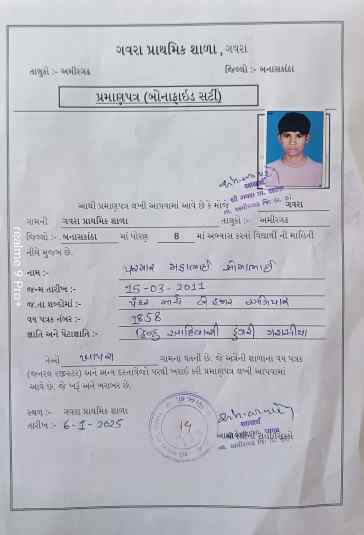 ગવરા પ્રાથમિક શાળા , ગવરા
તાલુકો :- અમીરગઢ જિલ્લો :- બનાસકાંઠા
પ્રમાણપત્ર (બોનાફાઇડ સર્ટી)
આથી પ્રમાણપત્ર લખી આપવામાં આવે છે કે મોજે ગવરા
ગામની ગવરા પ્રાથમિક શાળા તાલુકો :- અમીરગઢ
જિલ્લો :- બનાસકાંઠા માં ધોરણ 8 માં અભ્યાસ કરતાં વિદ્યાર્થી ની માહિતી
નીચે મુજબ છે.
નામ :- પરમાર
જન્મ તારીખ :- 15-03-2011
જ.તા શબ્દોમાં :- પંદર માર્ચ બે હજાર અગિયાર
વય પત્રક નંબર :- 1858
જ્ઞાતિ અને પેટાજ્ઞાતિ :- હિન્દુ આદિવાસી ડુંગરી ગરાસીયા
તેઓ ગામના વતની છે. જે અત્રેની શાળાના વય પત્રક
(જનરલ રજીસ્ટર) અને અન્ય દસ્તાવેજો પરથી ખરાઈ કરી પ્રમાણપત્ર લખી આપવામાં
આવે છે. જે ખરૂં અને બરાબર છે.
સ્થળ :- ગવરા પ્રાથમિક શાળા
તારીખ :- 6-1-2025
આચાર્ય
realme 9 Pro+